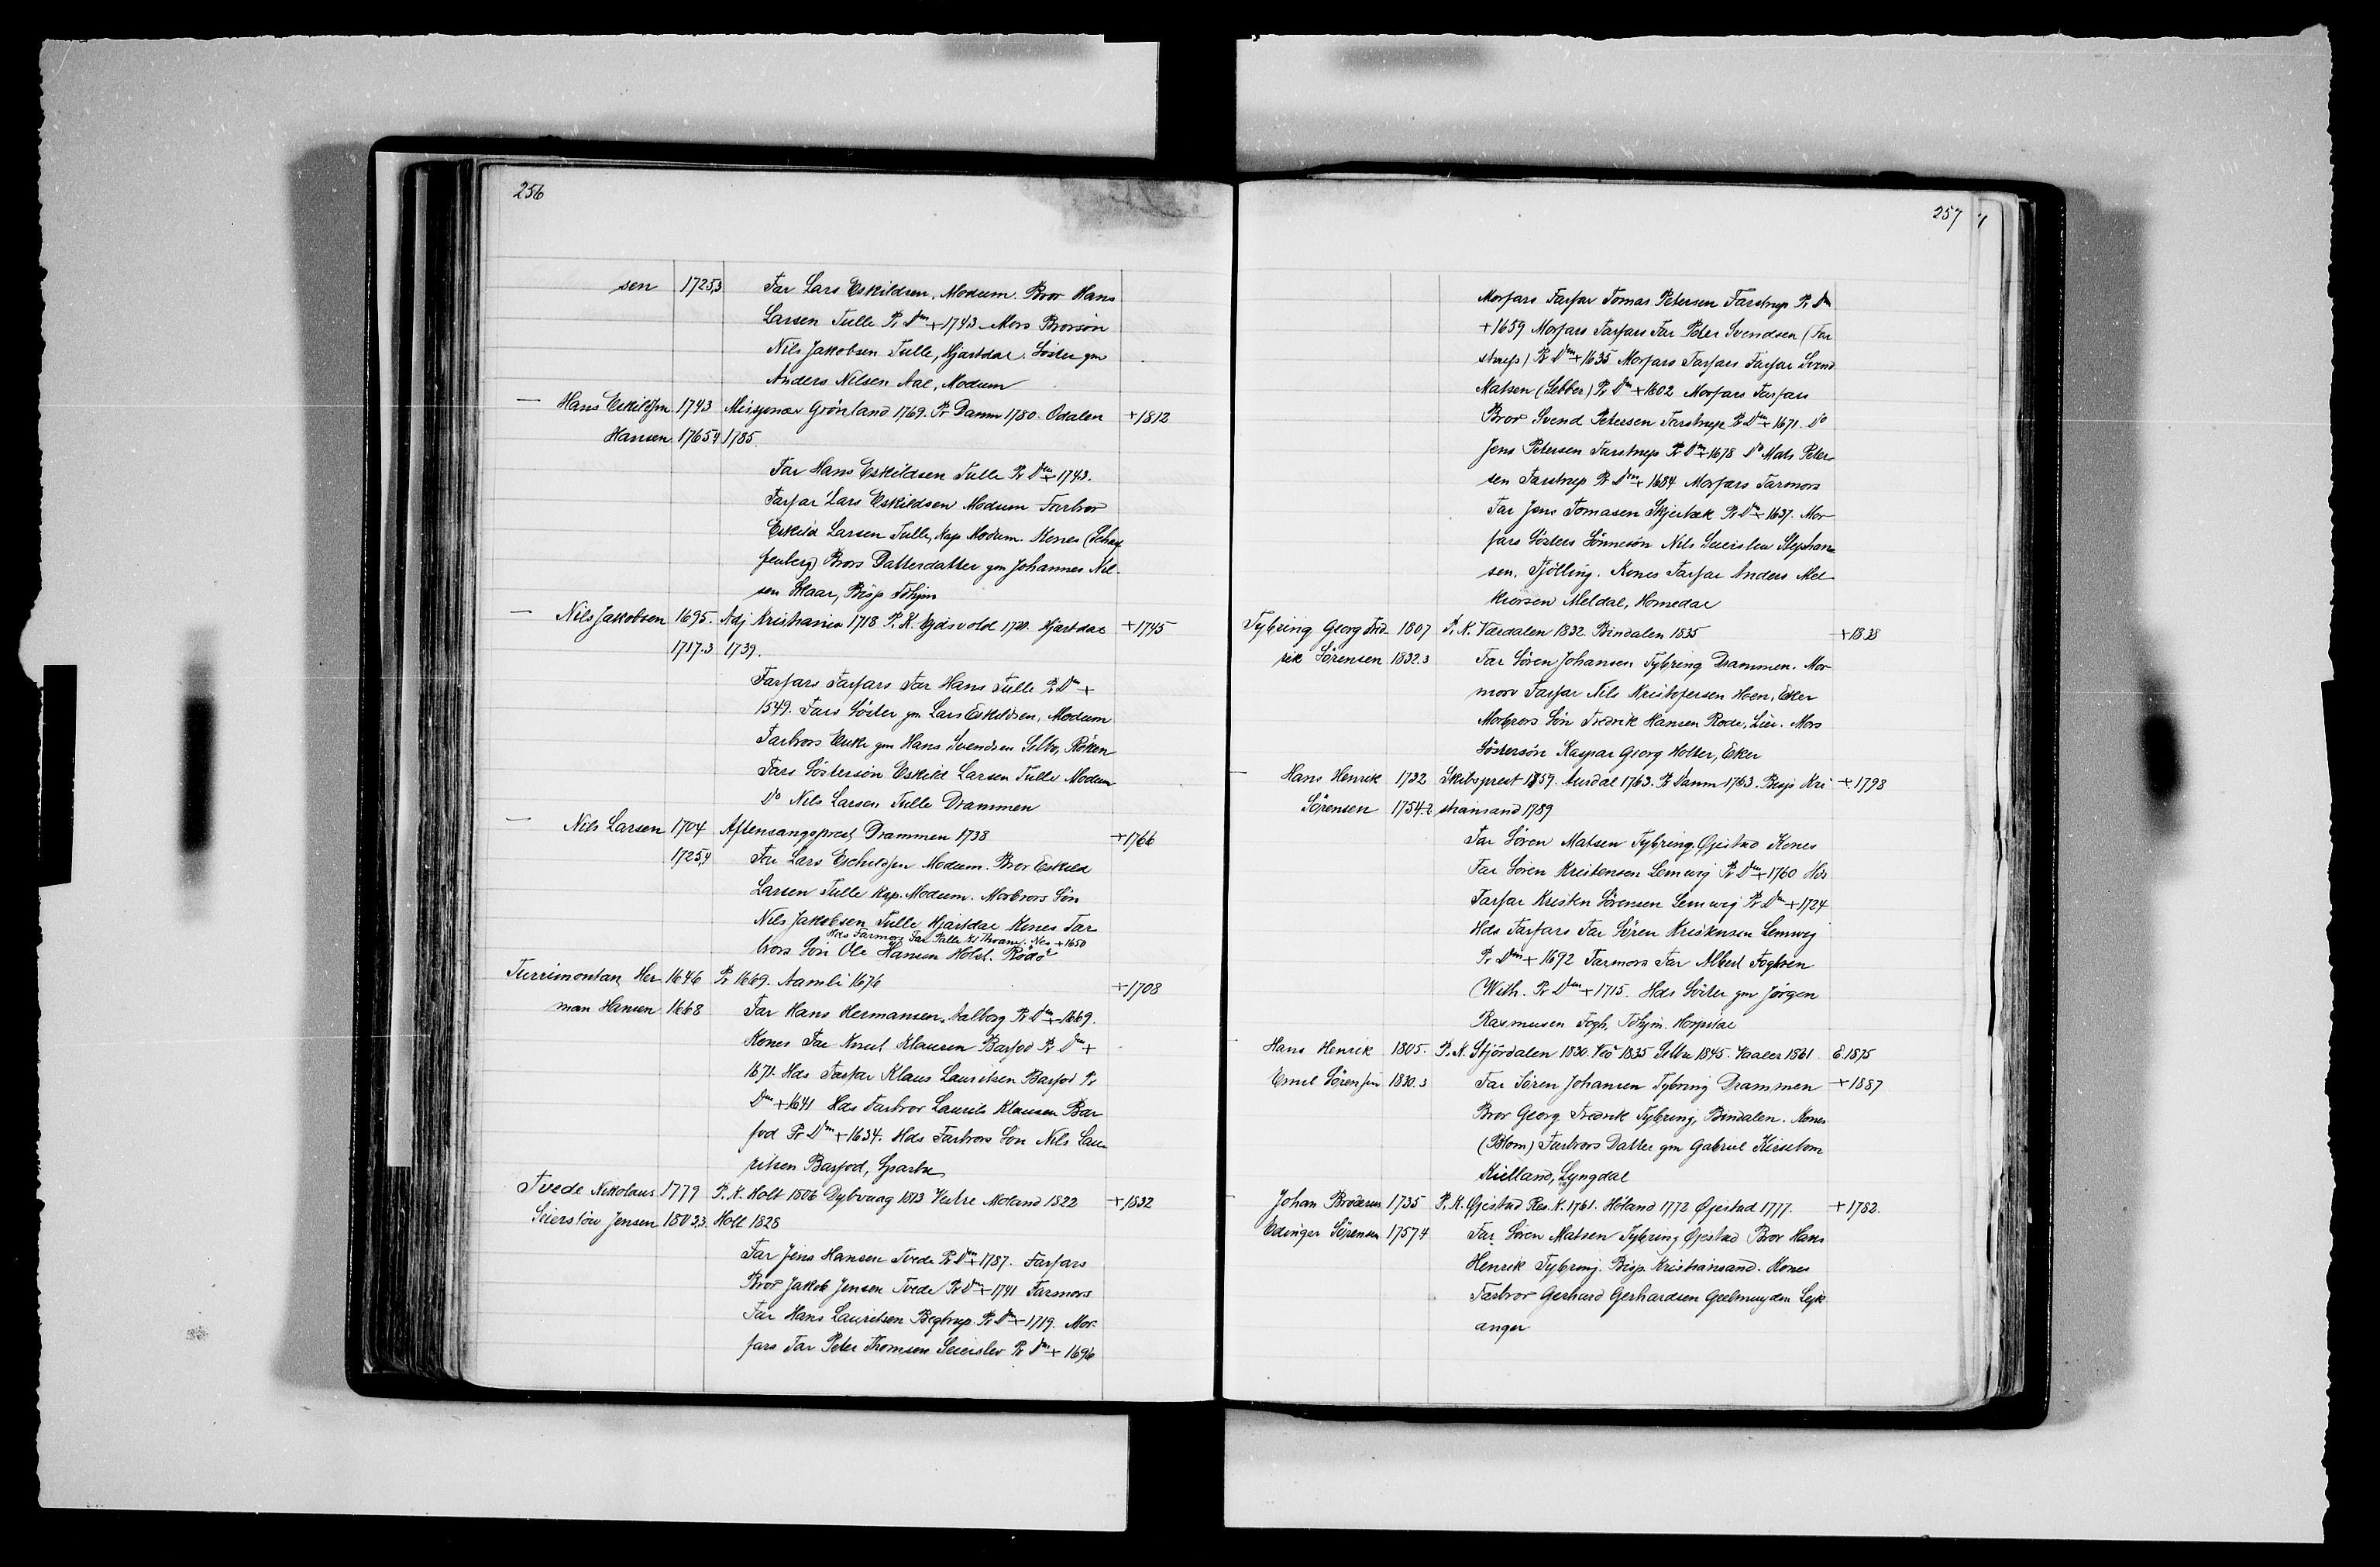 256
sen 1725,3 Far Lars Eskildsen, Modum. Bror Hans
Larsen Tulle Pr Dm + 1743. Mors Brorsön
Nils Jakobsen Tulle, Hjartdal. Söster gm
Anders Nilsen Aal, Modum
— Hans Eskildsen 1743 Missjonær Grönland 1769. Pr Danm 1780. Odalen + 1812
Hansen 1765,4 1785.
Far Hans Eskildsen Tulle Pr Dm + 1743.
Farfar Lars Eskildsen Modum Farbror
Eskild Larsen Tulle, Kap Modum. Kones (Schaf
fenberg) Brors Datterdatter gm Johannes Nil-
sen Skaar, Bisp Tröhjm
— Nils Jakobsen 1695. Adj Kristiania 1718 P. K. Ejdsvold 1720. Hjartdal + 1745
1717.3 1739.
Farfars Farfars Far Hans Tulle Pr Dm +
1549. Fars Söster gm Lars Eskildsen, Modum
Farbrors Enke gm Hans Svendsen Selbo, Röken
Fars Söstersön Eskild Larsen Tulle Modum
Do Nils Larsen Tulle Drammen
— Nils Larsen 1704 Aftensangsprest Drammen 1738 + 1766
1725,4 Far Lars Eschildsen Modum. Bror Eskild
Larsen Tulle Kap. Modum. Morbrors Sön
Nils Jakobsen Tulle Hjartdal Kones Far
Hds Farmors Far Palle Nes + 1650
brors Sön Ole Hansen Holst. Rödö
Turrimontan, Her 1646 Pr 1669. Aamli 1676 + 1708
man Hansen 1668 Far Hans Hermansen. Aalborg Pr Dm + 1669.
Kones Far Knut Klausen Barfod Pr Dm +
1671. Hds Farfar Klaus Lauritsen Barfod Pr
Dm + 1641 Hds Farbror Laurits Klausen Bar
fod Pr Dm + 1634. Hds Farbrors Sön Nils Lau-
ritsen Barfod, Sparbu
Tvede Nikolaus 1779 P. K. Holt 1806 Dybvaag 1813 Vestre Moland 1822 + 1832
Seierslöw Jensen 1803,3. Holt 1828
Far Jens Hansen Tvede Pr Dm + 1787. Farfars
Bror Jakob Jensen Tvede Pr Dm + 1741 Farmors
Far Hans Lauritsen Begtrup Pr Dm + 1719. Mor-
fars Far Peter Thomsen Seierslev Pr Dm + 1696
257
Morfars Farfar Tomas Petersen Farstrup Pr Dm
+ 1659 Morfars Farfars Far Peter Svendsen (Far
strup) Pr Dm + 1635 Morfars Farfars Farfar Svend
Matsen (Sebber) Pr Dm + 1602 Morfars Farfars
Bror Svend Petersen Farstrup Pr Dm + 1671. Do
Jens Petersen Farstrup Pr Dm + 1678 Do Mats Peter-
sen Farstrup Pr Dm + 1684 Morfars Farmors
Far Jens Tomasen Skjerbæk Pr Dm + 1637. Mor-
fars Sösters Sönnesön Nils Seierslew Stephan-
sen, Tjölling. Kones Farfar Anders Mel
kiorsen Meldal, Homedal
Tybring Georg Fred- 1807 P. K. Værdalen 1832. Bindalen 1835 + 1838
rik Sörensen 1832.3 Far Sören Johansen Tybring Drammen. Mor-
mors Farfar Nils Kristofersen Hoen, Eker
Morbrors Sön Fredrik Hansen Rode, Lier. Mors
Söstersön Kaspar Georg Holter, Eker
— Hans Henrik 1732 Skibsprest 1759. Aurdal 1763. Pr Danm 1763. Bisp Kri + 1798
Sörensen 1754.2 stiansand 1789
Far Sören Matsen Tybring Øjestad Kones
Far Sören Kristensen Lemvig Pr Dm + 1760 Hds
Farfar Kristen Sörensen Lemvig Pr Dm + 1724
Hds Farfars Far Sören Kristensen Lemvig
Pr Dm + 1692 Farmors Far Albert Foghsen
(With. Pr Dm + 1715. Hds Söster gm Jörgen
Rasmusen Fogh, Tröhjm. Hospital
— Hans Henrik 1805. P. K. Stjördalen 1830. Veö 1835 Selbu 1845. Vaaler 1861 E 1875
Emil Sörensen 1830.3 Far Sören Johansen Tybring Drammen + 1887
Bror Georg Fredrik Tybring, Bindalen. Kones
(Blom) Farbrors Datter gm Gabriel Kirsebom
Kielland, Lyngdal
— Johan Brodersen 1735 P. K. Øjestad Res. K. 1761. Höland 1772 Øjestad 1777. + 1782.
Edinger Sörensen 1757,4 Far Sören Matsen Tybring Øjestad Bror Hans
Henrik Tybring. Bisp. Kristiansand. Kones
Farbror Gerhard Gerhardsen Geelmuyden Lejk
anger